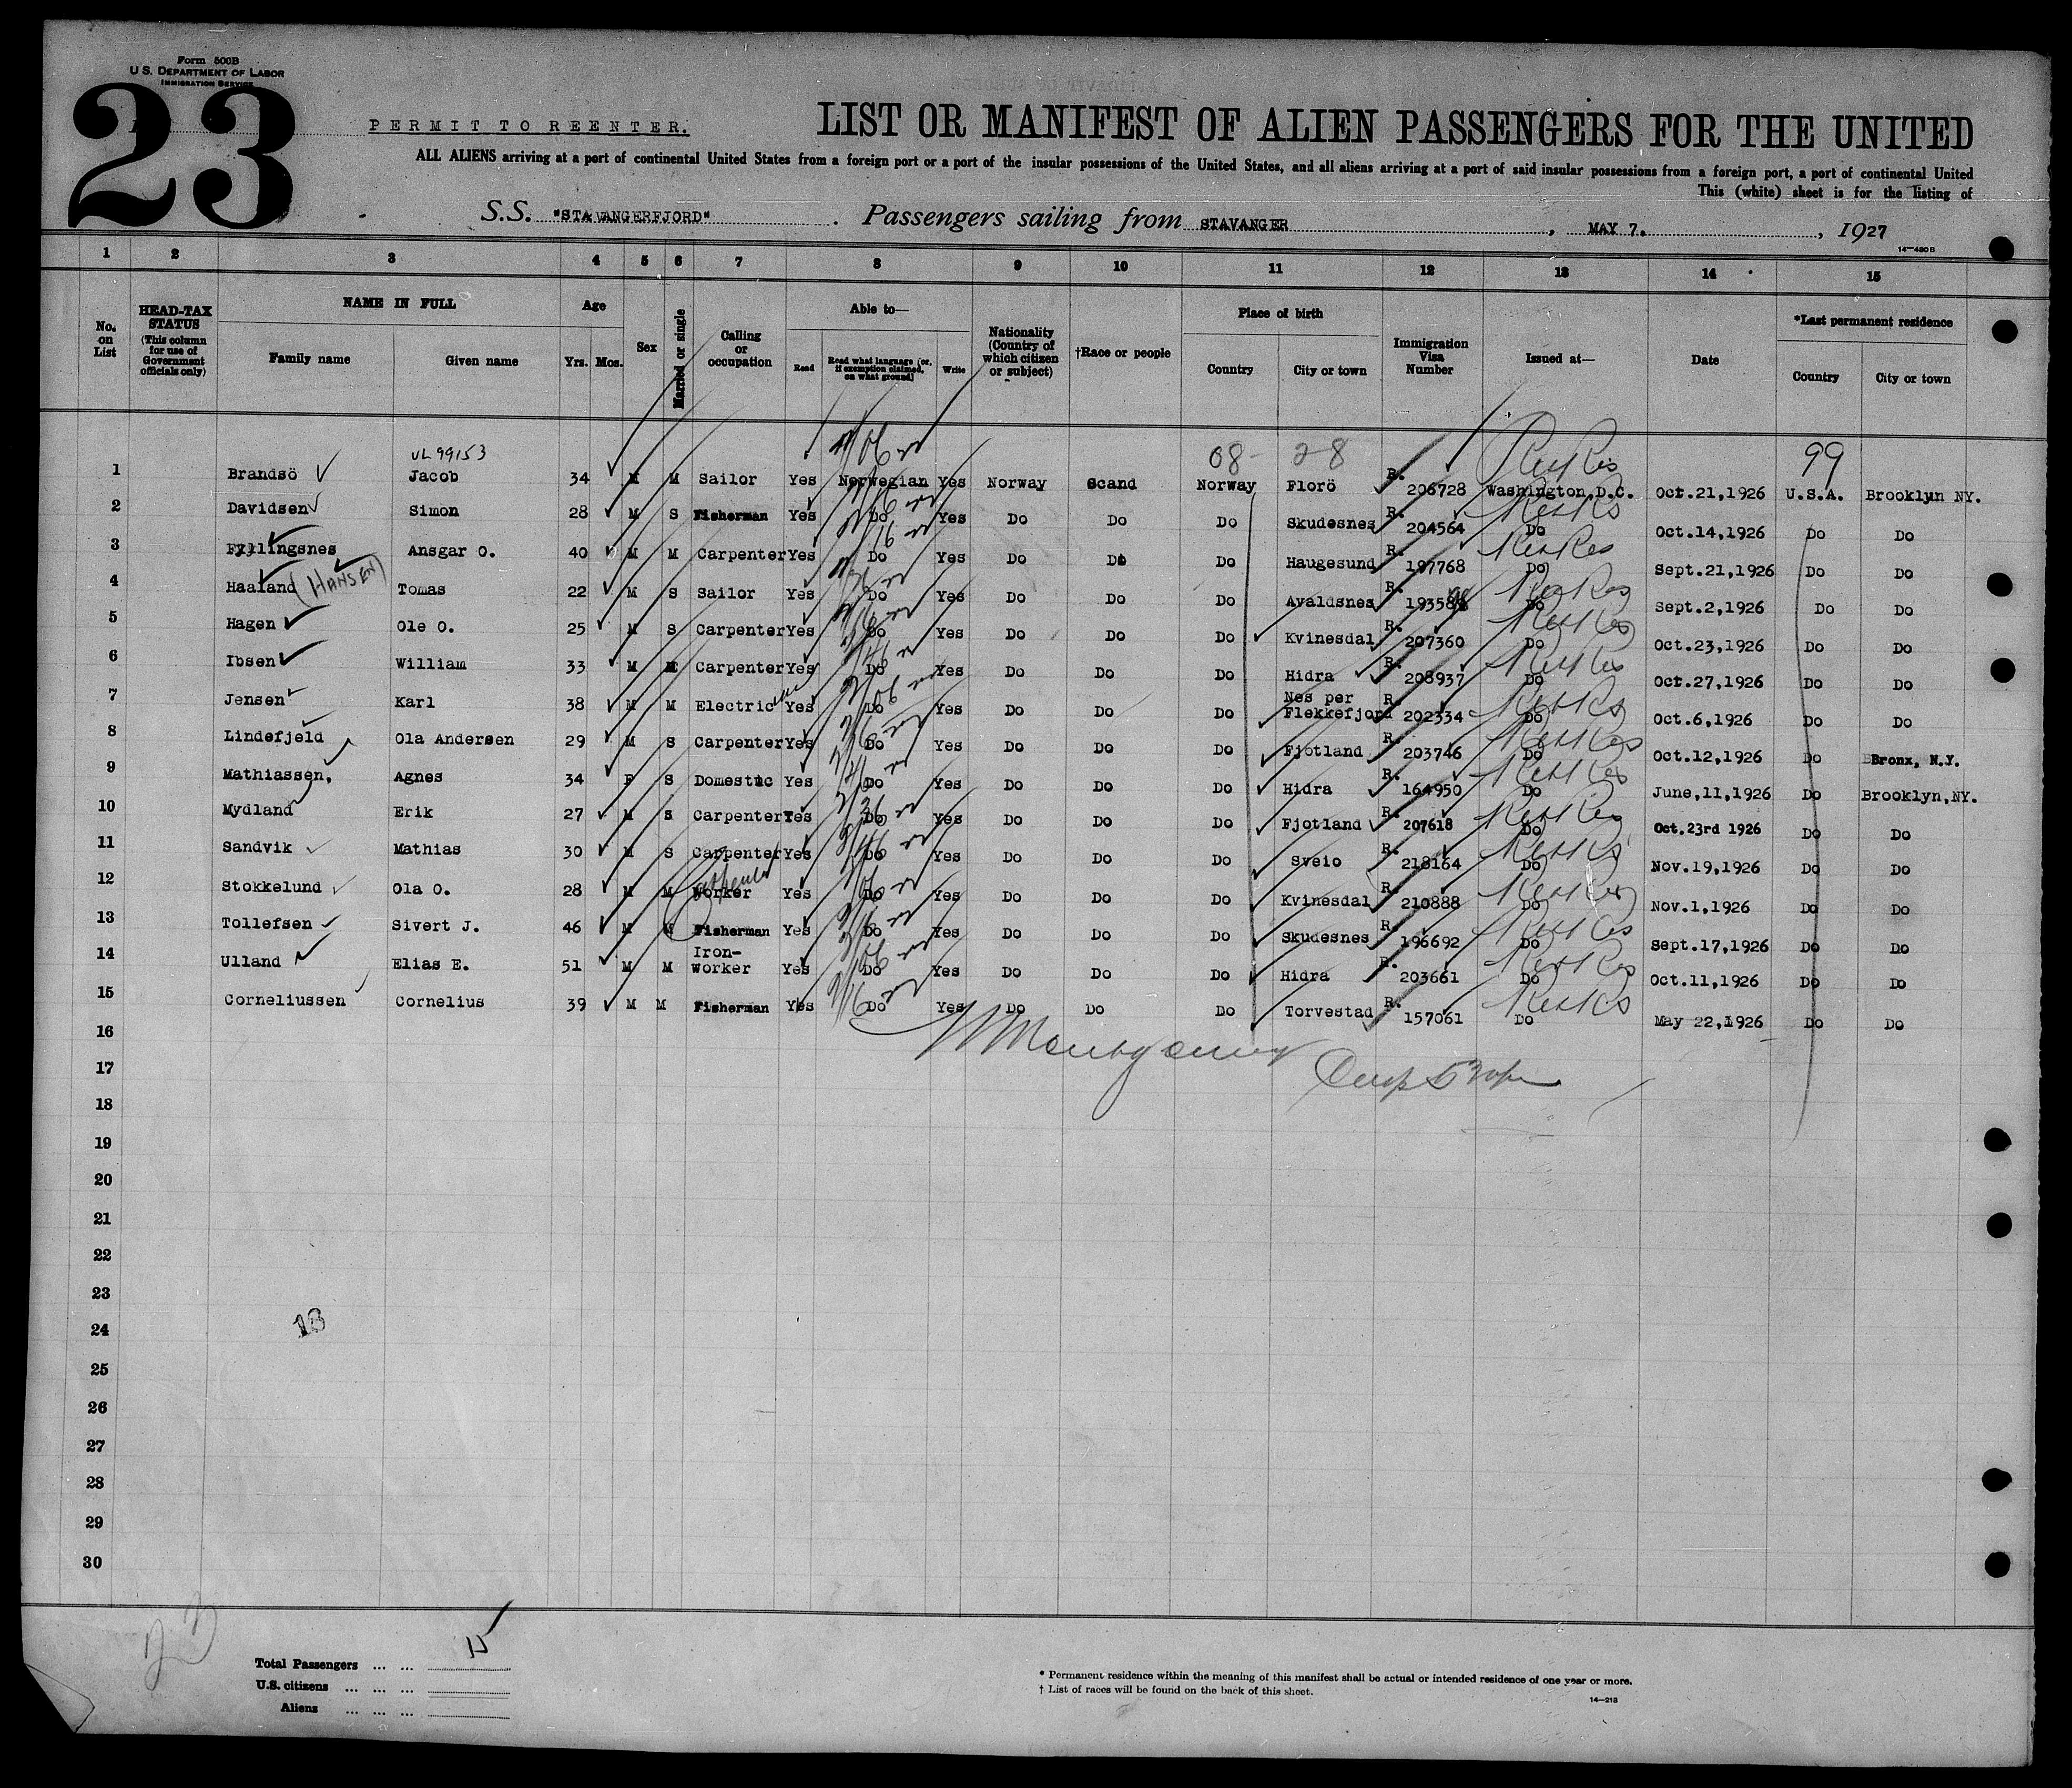 Form 500B
U. S. DEPARTMENT OF LABOR
IMMIGRATION SERVICE
23
PERMIT TO REENTER.
LIST OR MANIFEST OF ALIEN PASSENGERS FOR THE UNITED
ALL ALIENS arriving at a port of continental United States from a foreign port or a port of the insular possessions of the United States, and all aliens arriving at a port of said insular possessions from a foreign port, a port of continental United
This (white) sheet is for the listing of
S.S. "STAVANGERFJORD". Passengers sailing from STAVANGER, MAY 7., 1927
14—480 B
1 2 3 4 5 6 7 8 9 10 11 12 13 14 15
No. on List
HEAD-TAX STATUS (This column for use of Government officials only)
NAME IN FULL
Family name Given name
Age
Yrs. Mos.
Sex
Married or single
Calling or occupation
Able to—
Read Read what language (or, if exemption claimed, on what ground) Write
Nationality (Country of which citizen or subject)
†Race or people
Place of birth
Country City or town
Immigration Visa Number
Issued at—
Date
*Last permanent residence
Country City or town
UL 99153
08- 28 99
1 Brandsö Jacob 34 M M Sailor Yes Norwegian Yes Norway Scand Norway Florö R. 206728 Washington,D.C. Oct.21,1926 U.S.A. Brooklyn NY.
2 Davidsen Simon 28 M S Fisherman Yes Do Yes Do Do Do Skudesnes R. 204564 Do Oct.14,1926 Do Do
3 Fyllingsnes Ansgar O. 40 M M Carpenter Yes Do Yes Do Do Do Haugesund R. 197768 Do Sept.21,1926 Do Do
4 Haaland (HANSEN) Tomas 22 M S Sailor Yes Do Yes Do Do Do Avaldsnes R. Do Sept.2,1926 Do Do
5 Hagen Ole O. 25 M S Carpenter Yes Do Yes Do Do Do Kvinesdal R. 207360 Do Oct.23,1926 Do Do
6 Ibsen William 33 M M Carpenter Yes Do Yes Do Do Do Hidra R. 208937 Do Oct.27,1926 Do Do
7 Jensen Karl 38 M M Electric Yes Do Yes Do Do Do Nes per Flekkefjord R. 202334 Do Oct.6,1926 Do Do
8 Lindefjeld Ola Andersen 29 M S Carpenter Yes Do Yes Do Do Do Fjotland R. 203746 Do Oct.12,1926 Do Bronx, N.Y.
9 Mathiassen, Agnes 34 F S Domestic Yes Do Yes Do Do Do Hidra R. 164950 Do June,11,1926 Do Brooklyn,NY.
10 Mydland Erik 27 M S Carpenter Yes Do Yes Do Do Do Fjotland R. 207618 Do Oct.23rd 1926 Do Do
11 Sandvik Mathias 30 M S Carpenter Yes Do Yes Do Do Do Sveio R. 218164 Do Nov.19,1926 Do Do
12 Stokkelund Ola O. 28 M M Worker Yes Do Yes Do Do Do Kvinesdal R. 210888 Do Nov.1,1926 Do Do
13 Tollefsen Sivert J. 46 M M Fisherman Yes Do Yes Do Do Do Skudesnes R. 196692 Do Sept.17,1926 Do Do
14 Ulland Elias E. 51 M M Iron-worker Yes Do Yes Do Do Do Hidra R. 203661 Do Oct.11,1926 Do Do
15 Corneliussen Cornelius 39 M M Fisherman Yes Do Yes Do Do Do Torvestad R. 157061 Do May 22,1926 Do Do
16
Montgomery
17
18
19
20
21
22
23
24 13
25
26
27
28
29
30
Total Passengers ... ... 15
U.S. citizens ... ... ...
Aliens ... ... ...
* Permanent residence within the meaning of this manifest shall be actual or intended residence of one year or more.
† List of races will be found on the back of this sheet.
14—213